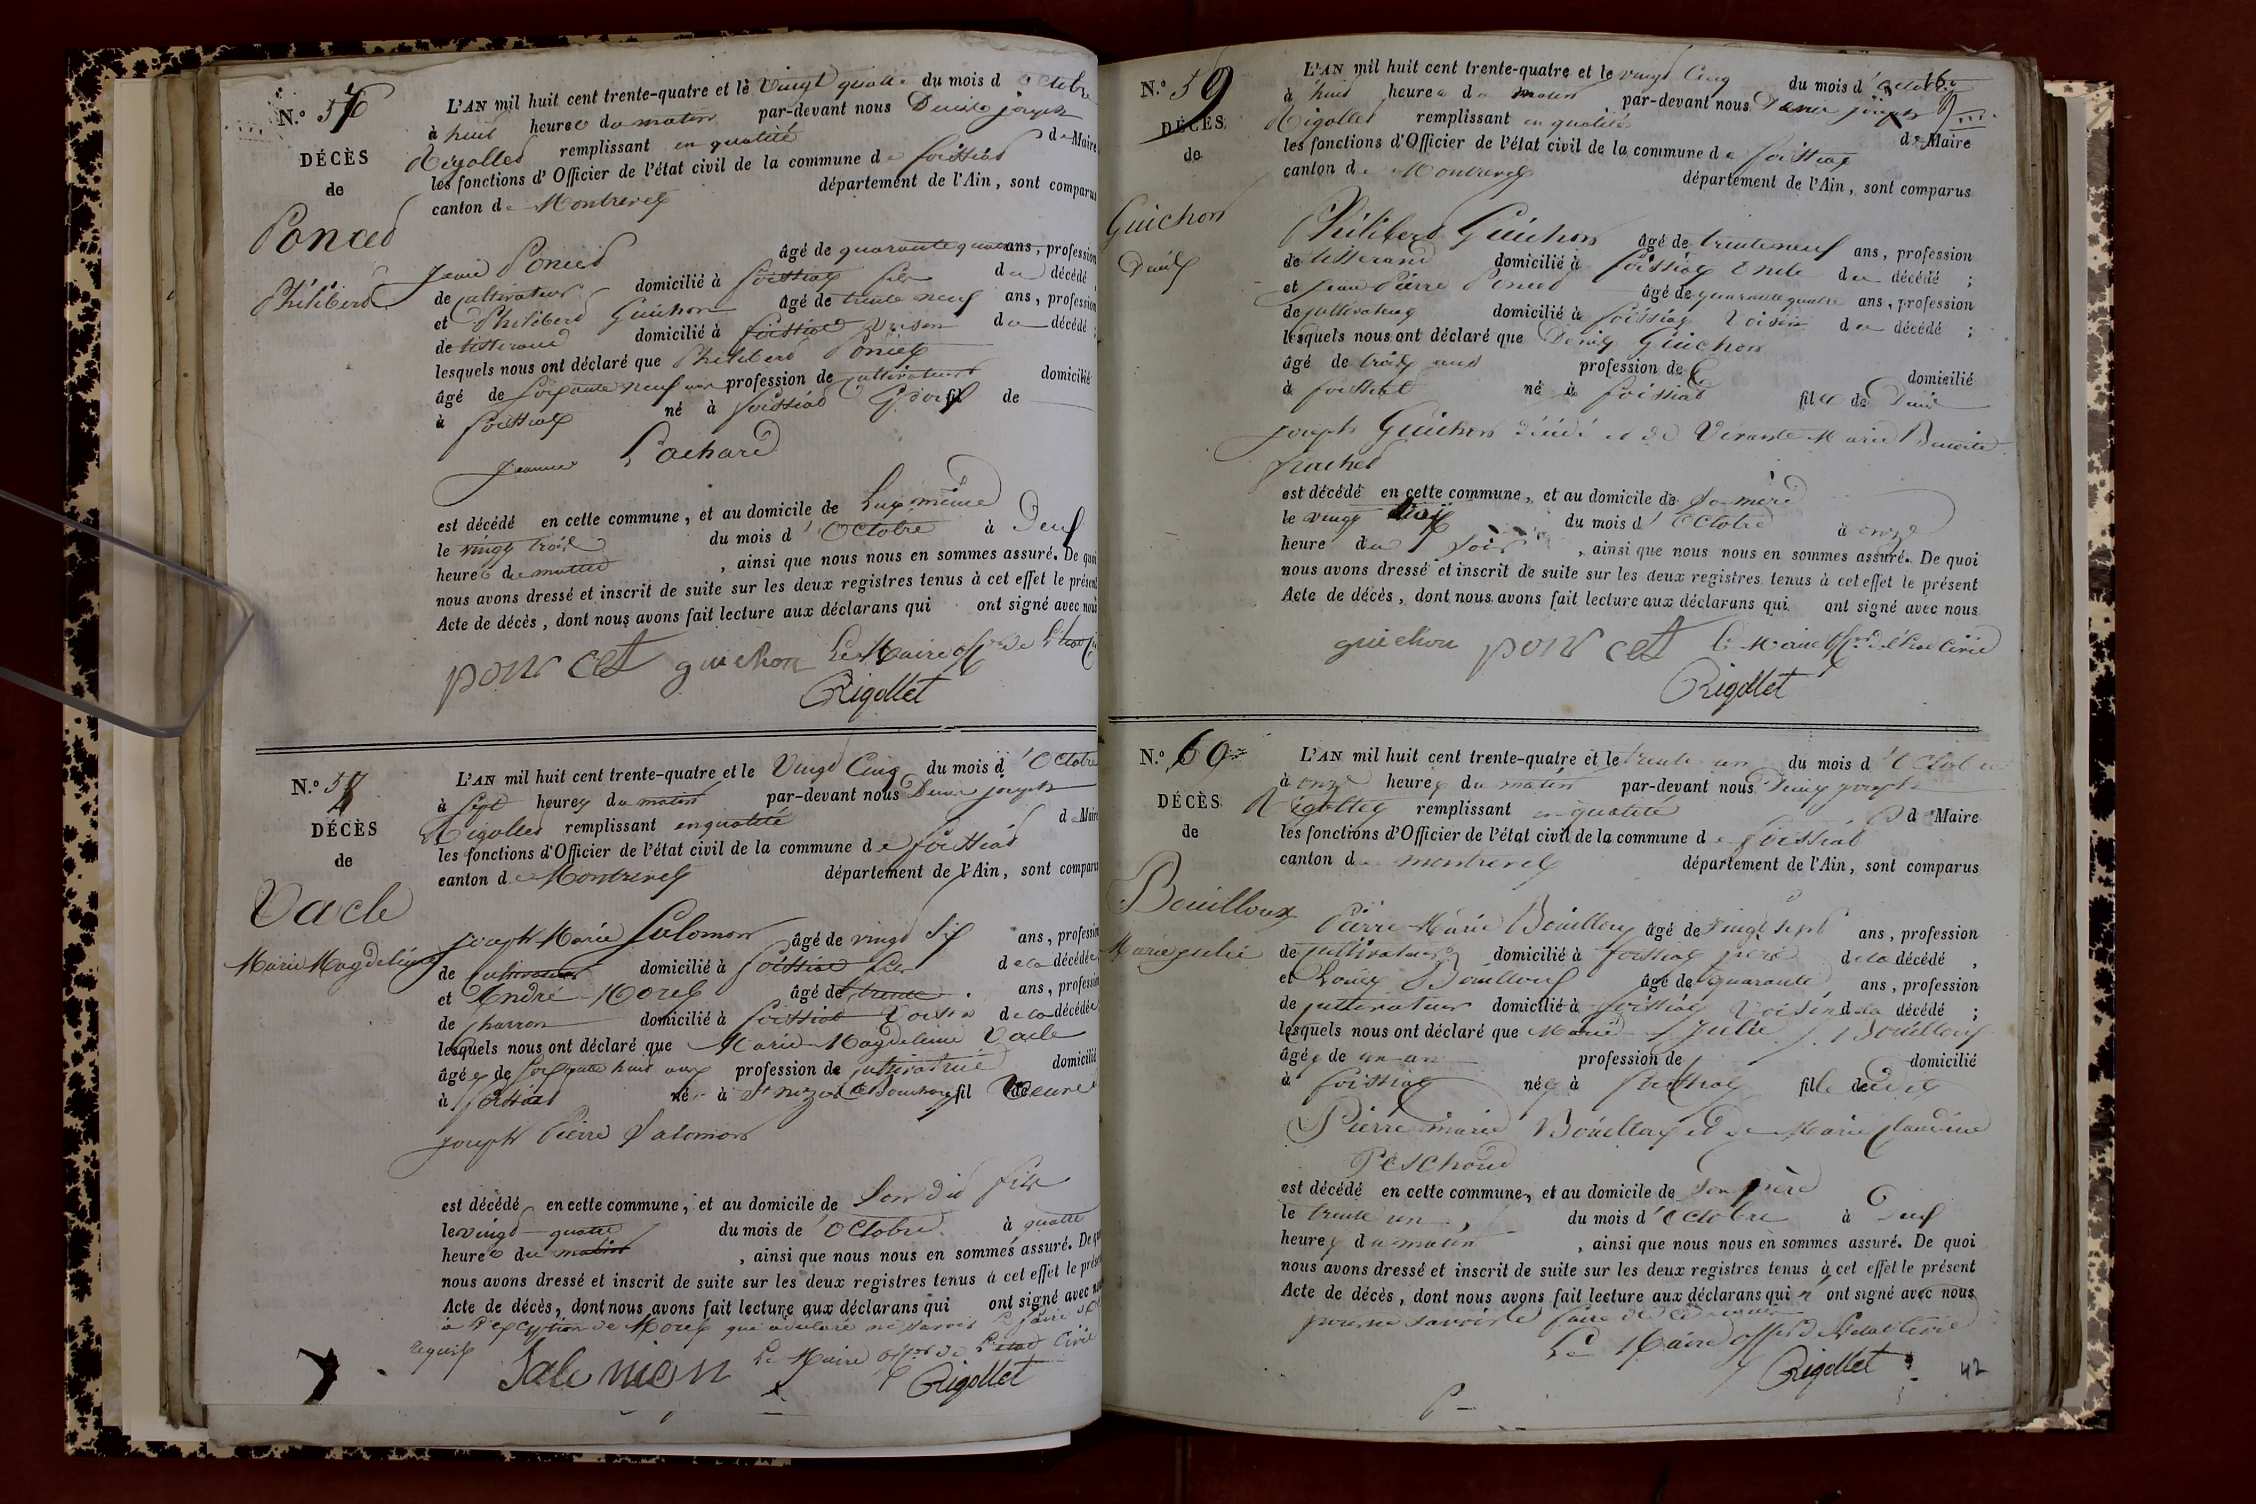 N.º 57
DÉCÈS
de
Poncet
Philibert
L'AN mil huit cent trente-quatre et le vingt quatre du mois d'Octobre
à huit heures du matin par-devant nous Denis joseph
Rigollet remplissant en qualité de Maire
les fonctions d'Officier de l'état civil de la commune de foissiat
canton de Montrevel département de l'Ain, sont comparus
Poncet âgé de quarante quatre ans, profession
de cultivateur domicilié à foissiat fils du décédé
et Philibert Guichon âgé de trente neuf ans, profession
de tisserand domicilié à foissiat voisin du décédé ;
lesquels nous ont déclaré que Philibert Poncet
âgé de soixante neuf ans profession de cultivateur domicilié
à foissiat né à foissiat Epoux de
Jeanne Pochard
est décédé en cette commune, et au domicile de Luy même
le vingt trois du mois d'Octobre à Neuf
heures du matin, ainsi que nous nous en sommes assuré. De quoi
nous avons dressé et inscrit de suite sur les deux registres tenus à cet effet le présent
Acte de décès, dont nous avons fait lecture aux déclarans qui ont signé avec nous
poncet guichon Le Maire off.er de L'Etat
Rigollet
N.º 58
DÉCÈS
de
Vacle
Marie Magdeleine
L'AN mil huit cent trente-quatre et le vingt Cinq du mois d'Octobre
à sept heures du matin par-devant nous Denis joseph
Rigollet remplissant en qualité de Maire
les fonctions d'Officier de l'état civil de la commune de foissiat
canton de Montrevel département de l'Ain, sont comparus
joseph Marie Salomon âgé de vingt six ans, profession
de cultivateur domicilié à foissiat fils de la décédée
et André Morel âgé de trente ans, profession
de charron domicilié à foissiat voisin de la décédée
lesquels nous ont déclaré que Marie Magdeleine Vacle
âgée de soixante huit ans profession de cultivatrice domicilié
à foissiat né à St nizier le Bouchoux fil Veuve de
joseph Pierre Salomon
est décédé en cette commune, et au domicile de son dit fils
le vingt quatre du mois de Octobre à quatre
heures du matin, ainsi que nous nous en sommes assuré. De quoi
nous avons dressé et inscrit de suite sur les deux registres tenus à cet effet le présent
Acte de décès, dont nous avons fait lecture aux déclarans qui ont signé avec nous
à l'exception de Morel qui a déclaré ne savoir le faire
requis
Salomon Le Maire off.er de L'etat Civil
Rigollet
N.º 59
DÉCÈS
de
Guichon
Denis
L'AN mil huit cent trente-quatre et le vingt Cinq du mois d'Octobre
à huit heures du matin par-devant nous Denis joseph
Rigollet remplissant en qualité de Maire
les fonctions d'Officier de l'état civil de la commune de foissiat
canton de Montrevel département de l'Ain, sont comparus
Philibert Guichon âgé de trente neuf ans, profession
de tisserand domicilié à foissiat oncle du décédé ;
et jean Pierre Poncet âgé de quarante quatre ans, profession
de cultivateur domicilié à foissiat voisin du décédé ;
lesquels nous ont déclaré que Denis Guichon
âgé de trois ans profession de domicilié
à foissiat né à foissiat fils de
joseph Guichon décédé et de Vivante Marie Benoite
est décédé en cette commune, et au domicile de sa mère
le vingt trois du mois d'Octobre à onze
heure du soir, ainsi que nous nous en sommes assuré. De quoi
nous avons dressé et inscrit de suite sur les deux registres tenus à cet effet le présent
Acte de décès, dont nous avons fait lecture aux déclarans qui ont signé avec nous
guichon poncet le Maire off.er de l'Etat Civil
Rigollet
N.º 60
DÉCÈS
de
Bouilloux
Marie julie
L'AN mil huit cent trente-quatre et le trente un du mois d'Octobre
à onze heures du matin par-devant nous Denis joseph
Rigollet remplissant en qualité de Maire
les fonctions d'Officier de l'état civil de la commune de foissiat
canton de montrevel département de l'Ain, sont comparus
Pierre Marie Bouilloux âgé de vingt sept ans, profession
de cultivateur domicilié à foissiat père de la décédé,
et Louis Bouilloux âgé de quarante ans, profession
de cultivateur domicilié à foissiat voisin de la décédé ;
lesquels nous ont déclaré que Marie Julie Bouilloux
âgée de un an profession de domicilié
à foissiat née à foissiat fille de
Pierre marie Bouilloux et de Marie Claudine
Peschoud
est décédé en cette commune, et au domicile de son père
le trente un du mois d'Octobre à neuf
heures du matin, ainsi que nous nous en sommes assuré. De quoi
nous avons dressé et inscrit de suite sur les deux registres tenus à cet effet le présent
Acte de décès, dont nous avons fait lecture aux déclarans qui n'ont signé avec nous
pour ne savoir le faire de ce requis
Le Maire off.er de l'Etat Civil
Rigollet
42